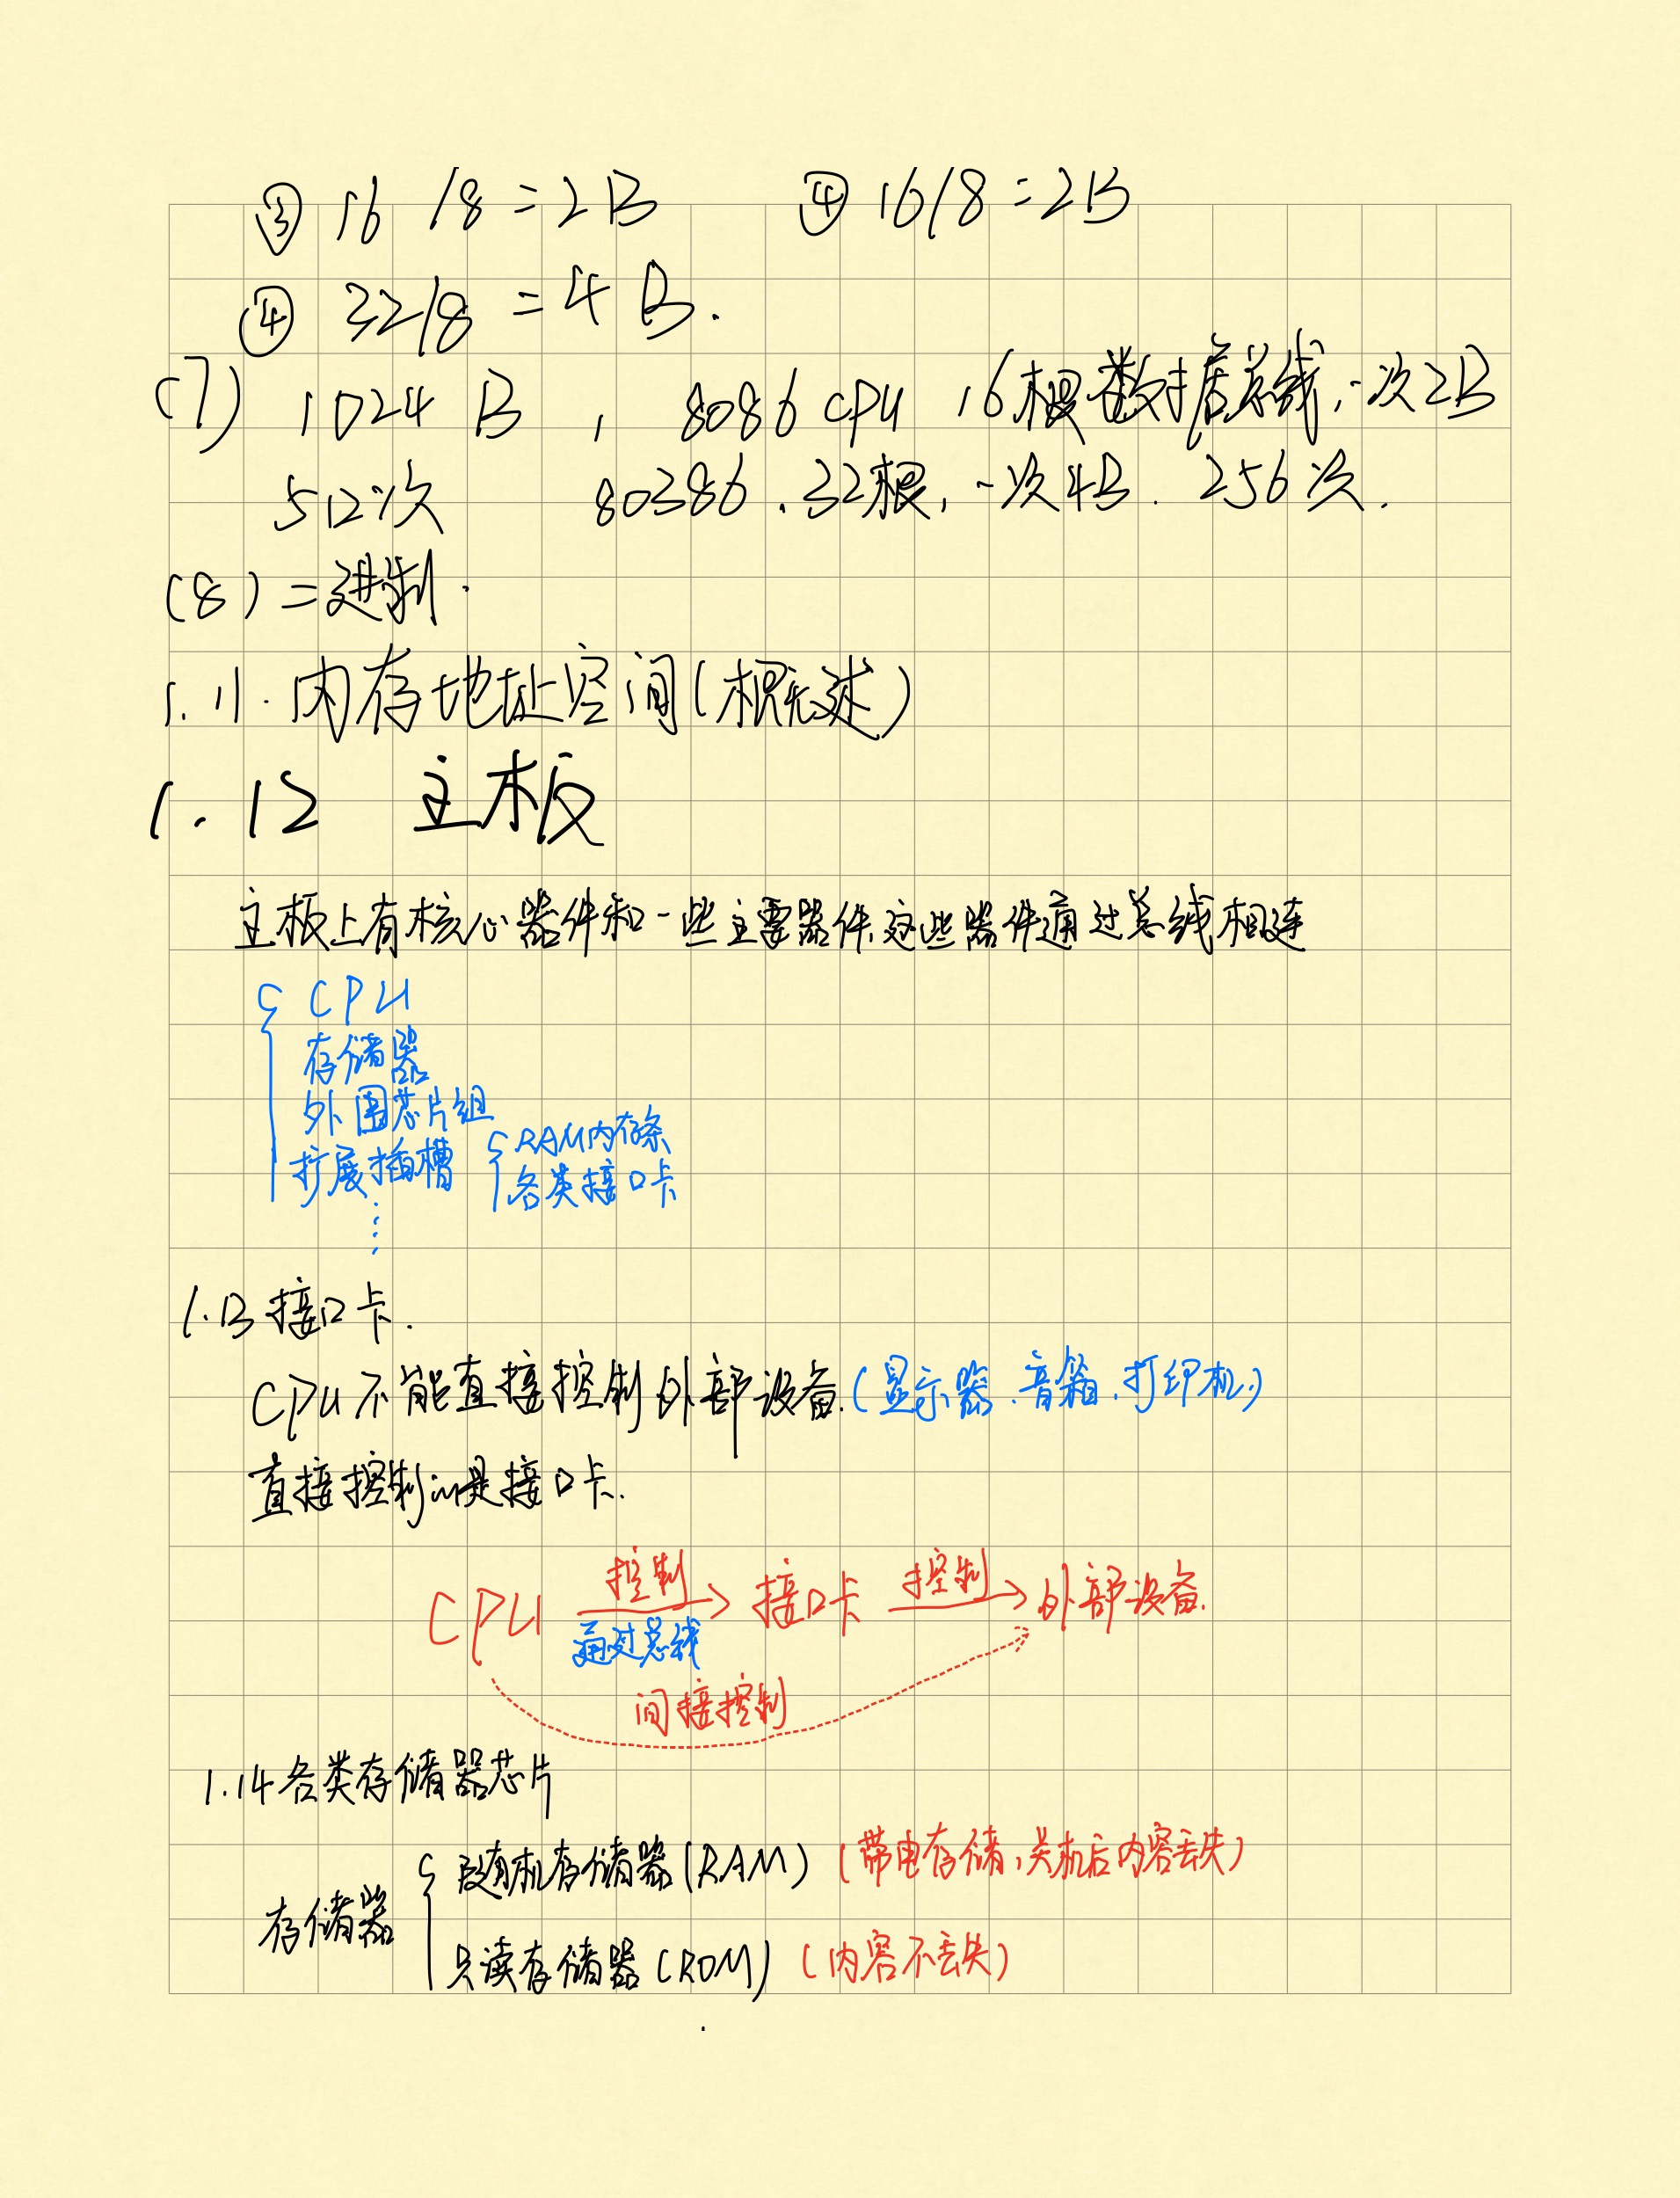 ③ 16/8=2B ④ 16/8=2B
④ 32/8=4B.
(7) 1024B, 8086CPU 16根数据总线,一次2B
512次 80386.32根,一次4B. 256次.
(8)二进制.
1.11.内存地址空间(概述)
1.12 主板
主板上有核心器件和一些主要器件,这些器件通过总线相连
CPU
存储器
外围芯片组
扩展插槽 RAM内存条
各类接口卡
......
1.13接口卡.
CPU不能直接控制外部设备.(显示器、音箱、打印机)
直接控制的是接口卡.
CPU 控制 接口卡 控制 外部设备.
通过总线
间接控制
1.14各类存储器芯片
存储器
随机存储器(RAM) (带电存储,关机后内容丢失)
只读存储器(ROM) (内容不丢失)